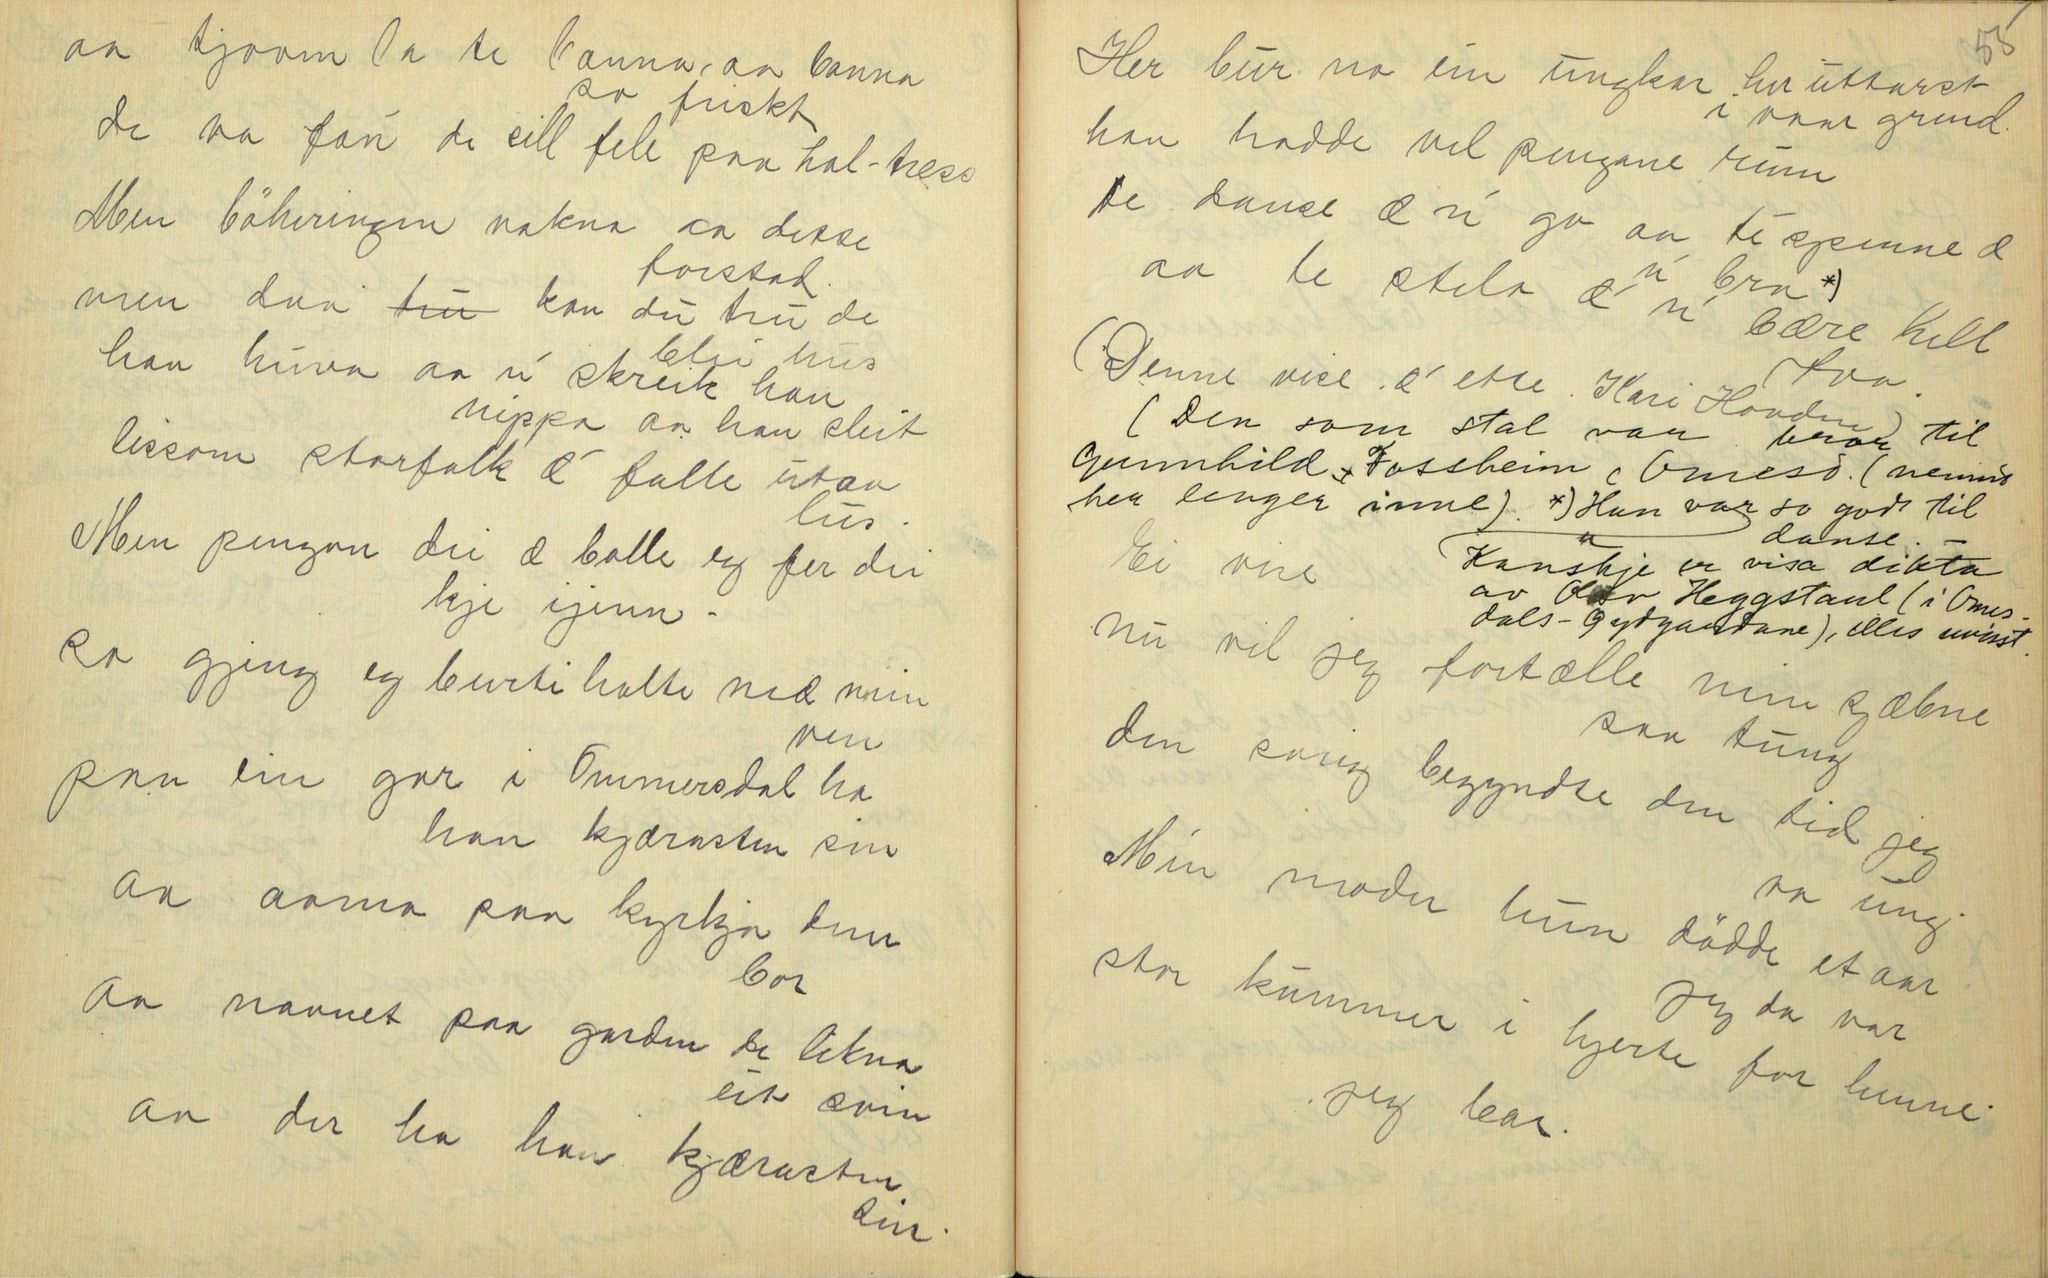 aa tjoom la te banna, aa banna
so friskt
de va fan de sill fele paa hal-tress
Men böheringen vakna aa desse
forstod.
men daa tru kan du tru de
blei hus
han huva aa n' skreik han
nippa aa han sleit
lissom storfolk æ' fulle utan
lus.
Men pengan dei æ balle eg fer dei
kje ijenn -
so gjeng eg burti holte mæ min
ven
paa ein gar i Ommersdal ha
han kjærasten sin
aa aama paa kyrkja denn
bor
aa navnet paa garden de likna
eit svin
aa der ha han kjærasten
sin.
55
Her bur no ein ungkar her uttarst
i vaar grend.
han hadde vel pengane rum
De danse æ n' go aa te spenne æ
n' bra *)
aa te stela æ' n' bære hell
tvo.
(Denne vise æ' ette Kari Hovden)
(Den som stal var bror til
Gunnhild Fossheim, Omesö. (nemnis
her lenger inne). *) Han var so god til
danse.
Kanskje er visa dikta
av Olav Heggstaul (i Omes-
dals-Gydgardane), elles uvisst.
Ei vise
nu vil jeg fortælle min sjæbne
saa tung
den sorig begyndte den tid jeg
va ung.
Min moder hun dödde et aar
jeg da var
stor kummer i hjerte for henne
jeg bar.